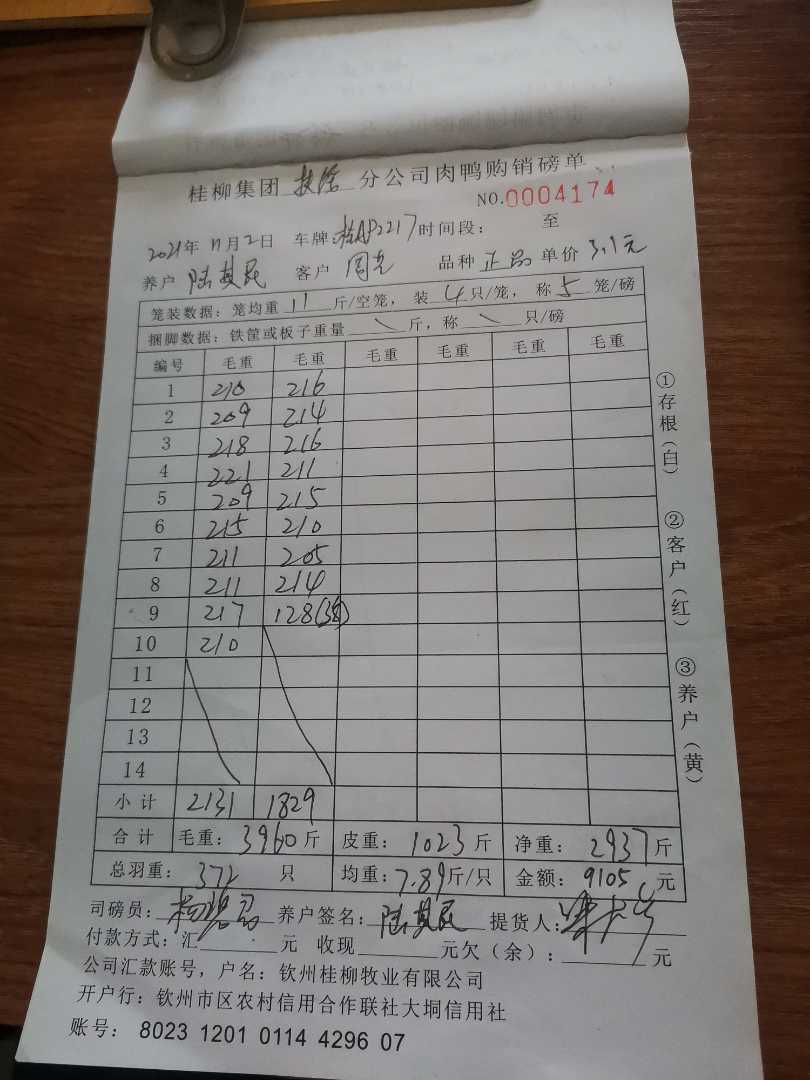 桂柳集团 扶绥 分公司肉鸭购销磅单
NO.0004174
2021年 11月2日 车牌 桂AP2217 时间段: 至
养户 陆其昆 客户 周 品种 正品 单价 3.1元
笼装数据:笼均重 11 斤/空笼,装 4 只/笼,称 5 笼/磅
捆脚数据:铁筐或板子重量 \ 斤,称 \ 只/磅
编号 毛重 毛重 毛重 毛重 毛重 毛重
1 210 216
2 209 214
3 218 216
4 221 211
5 209 215
6 215 210
7 211 205
8 211 214
9 217 128(3笼)
10 210
11
12
13
14
小计 2131 1829
合计 毛重:3960斤 皮重:1023斤 净重:2937斤
总羽重:372 只 均重:7.89斤/只 金额:9105元
司磅员: 养户签名:陆其昆 提货人:
付款方式:汇 元 收现 元欠(余): 元
公司汇款账号,户名:钦州桂柳牧业有限公司
开户行:钦州市区农村信用合作联社大垌信用社
账号: 8023 1201 0114 4296 07
①存根(白)
②客户(红)
③养户(黄)